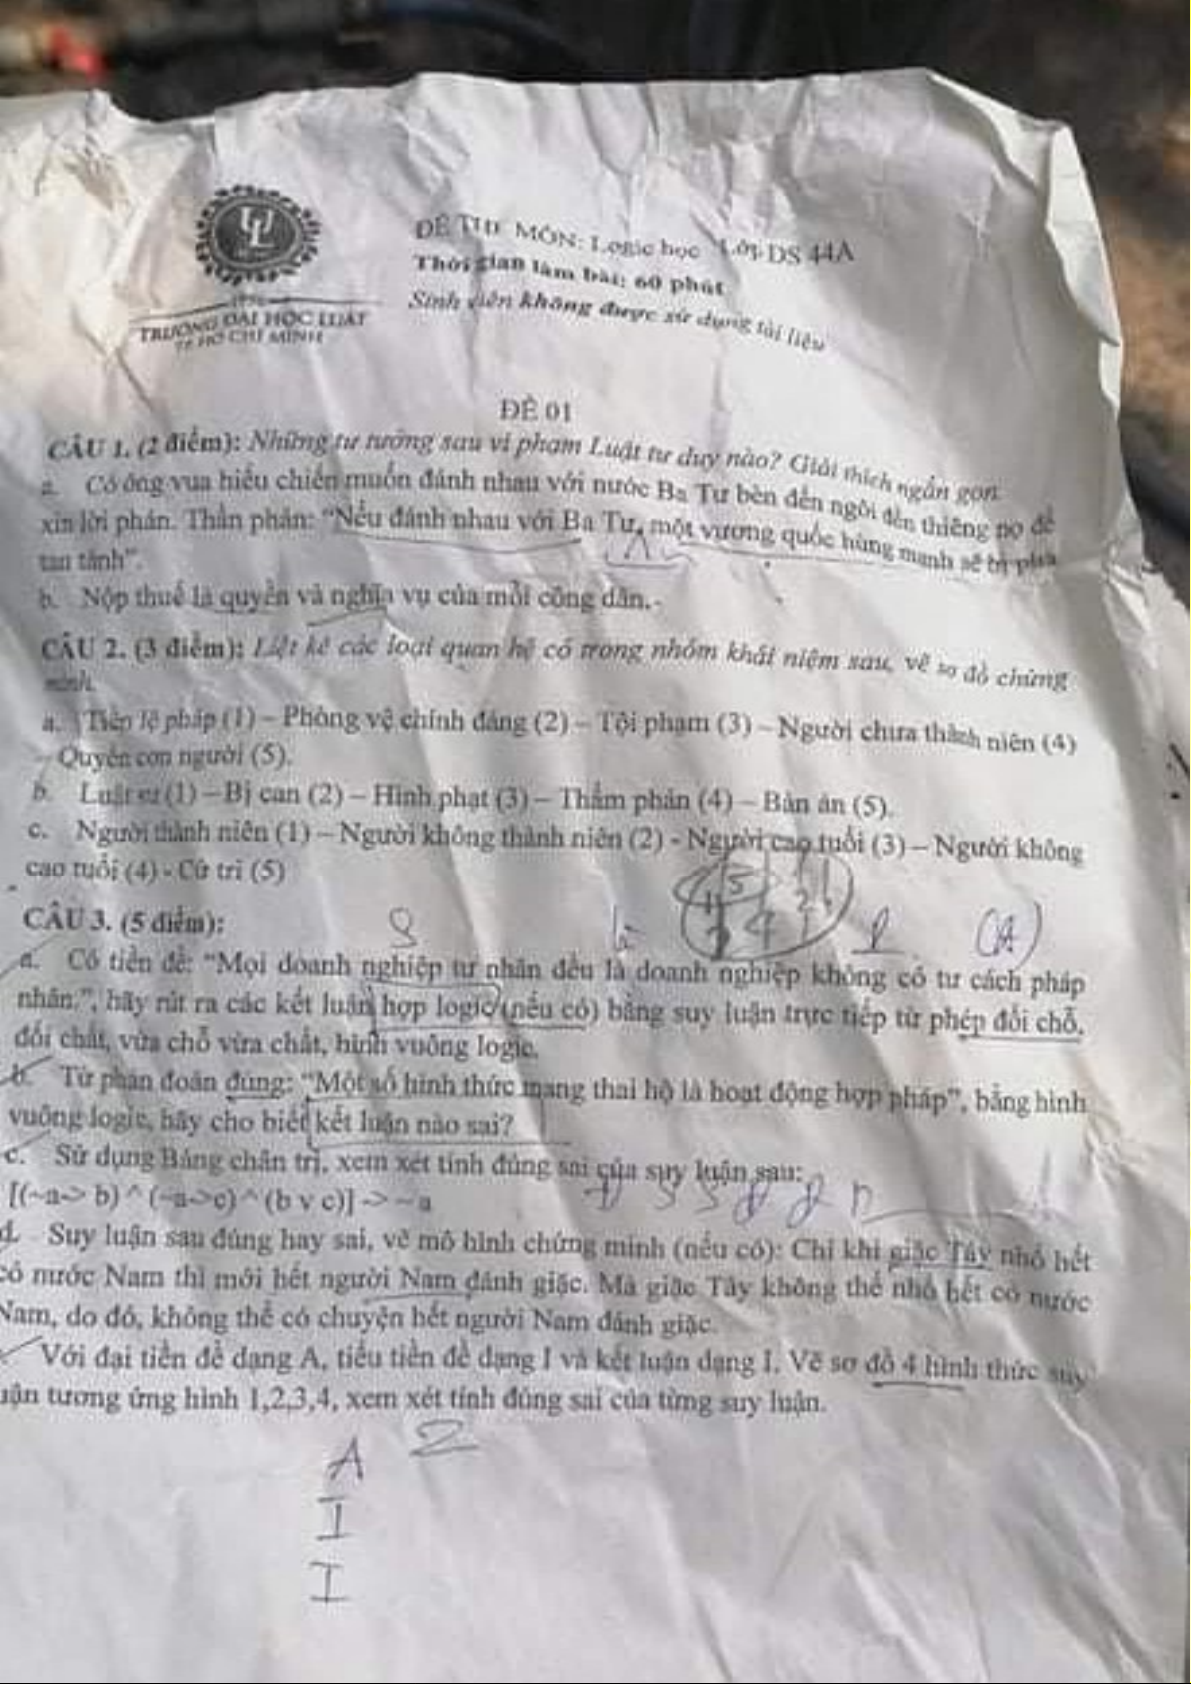 UL
1996
TRƯỜNG ĐẠI HỌC LUẬT
TP HỒ CHÍ MINH
ĐỀ THI MÔN: Logic học Lớp DS 44A
Thời gian làm bài: 60 phút
Sinh viên không được sử dụng tài liệu
ĐỀ 01
CÂU 1. (2 điểm): Những tư tưởng sau vi phạm Luật tư duy nào? Giải thích ngắn gọn.
a. Có ông vua hiếu chiến muốn đánh nhau với nước Ba Tư bèn đến ngôi đền thiêng nọ để
xin lời phán. Thần phán: “Nếu đánh nhau với Ba Tư, một vương quốc hùng mạnh sẽ bị phá
tan tành”.
b. Nộp thuế là quyền và nghĩa vụ của mỗi công dân.
CÂU 2. (3 điểm): Liệt kê các loại quan hệ có trong nhóm khái niệm sau, vẽ sơ đồ chứng
minh.
a. Tiền lệ pháp (1) – Phòng vệ chính đáng (2) – Tội phạm (3) – Người chưa thành niên (4)
– Quyền con người (5).
b. Luật sư (1) – Bị can (2) – Hình phạt (3) – Thẩm phán (4) – Bản án (5).
c. Người thành niên (1) – Người không thành niên (2) - Người cao tuổi (3) – Người không
cao tuổi (4) - Cử tri (5)
CÂU 3. (5 điểm):
S P (A)
a. Có tiền đề: “Mọi doanh nghiệp tư nhân đều là doanh nghiệp không có tư cách pháp
nhân.”, hãy rút ra các kết luận hợp logic (nếu có) bằng suy luận trực tiếp từ phép đổi chỗ,
đổi chất, vừa chỗ vừa chất, hình vuông logic.
b. Từ phán đoán đúng: “Một số hình thức mang thai hộ là hoạt động hợp pháp”, bằng hình
vuông logic, hãy cho biết kết luận nào sai?
c. Sử dụng Bảng chân trị, xem xét tính đúng sai của suy luận sau:
[(~a-> b) ^ (~a->c) ^ (b v c)] -> ~a
d. Suy luận sau đúng hay sai, vẽ mô hình chứng minh (nếu có): Chỉ khi giặc Tây nhổ hết
cỏ nước Nam thì mới hết người Nam đánh giặc. Mà giặc Tây không thể nhổ hết cỏ nước
Nam, do đó, không thể có chuyện hết người Nam đánh giặc.
Với đại tiền đề dạng A, tiểu tiền đề dạng I và kết luận dạng I. Vẽ sơ đồ 4 hình thức suy
luận tương ứng hình 1,2,3,4, xem xét tính đúng sai của từng suy luận.
A 2
I
I